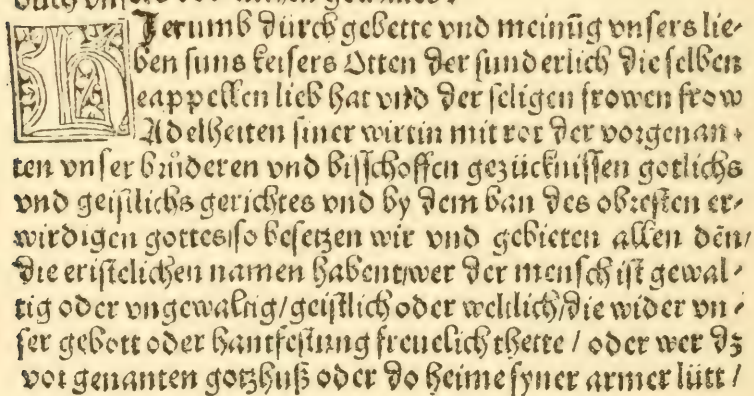 Herumb dürch gebette vnd meinūg vnsers lie⸗
ben suns keisers Otten der sunderlich die selben
cappellen lieb hat vnd der seligen frowen frow
Adelheiten siner wirtin mit rot der vorgenan⸗
ten vnser brüderen vnd bisschoffen gezückniſſen gotlichs
vnd geistlichs gerichtes vnd by dem ban des obresten er⸗
wirdigen gottes/so besetzen wir vnd gebieten allen dēn/
die cristelichen namen habent/wer der mensch ist gewal⸗
tig oder vngewaltig/geistlich oder weltlich/die wider vn⸗
ser gebott oder hantfestung freuelich thette / oder wer dz
vor genanten gotzhuß oder do heime syner armer lütt /